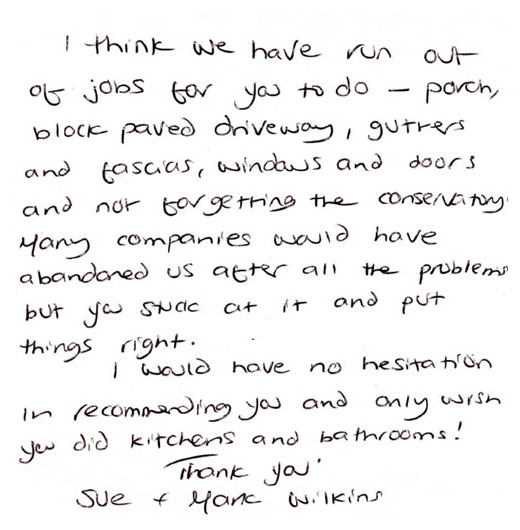 I think we have run out
of jobs for you to do – porch,
block paved driveway, gutters
and fascias, windows and doors
and not forgetting the conservatory.
Many companies would have
abandoned us after all the problems
but you stuck at it and put
things right.
I would have no hesitation
in recommending you and only wish
you did kitchens and bathrooms!
Thank you
Sue + Mark Wilkins